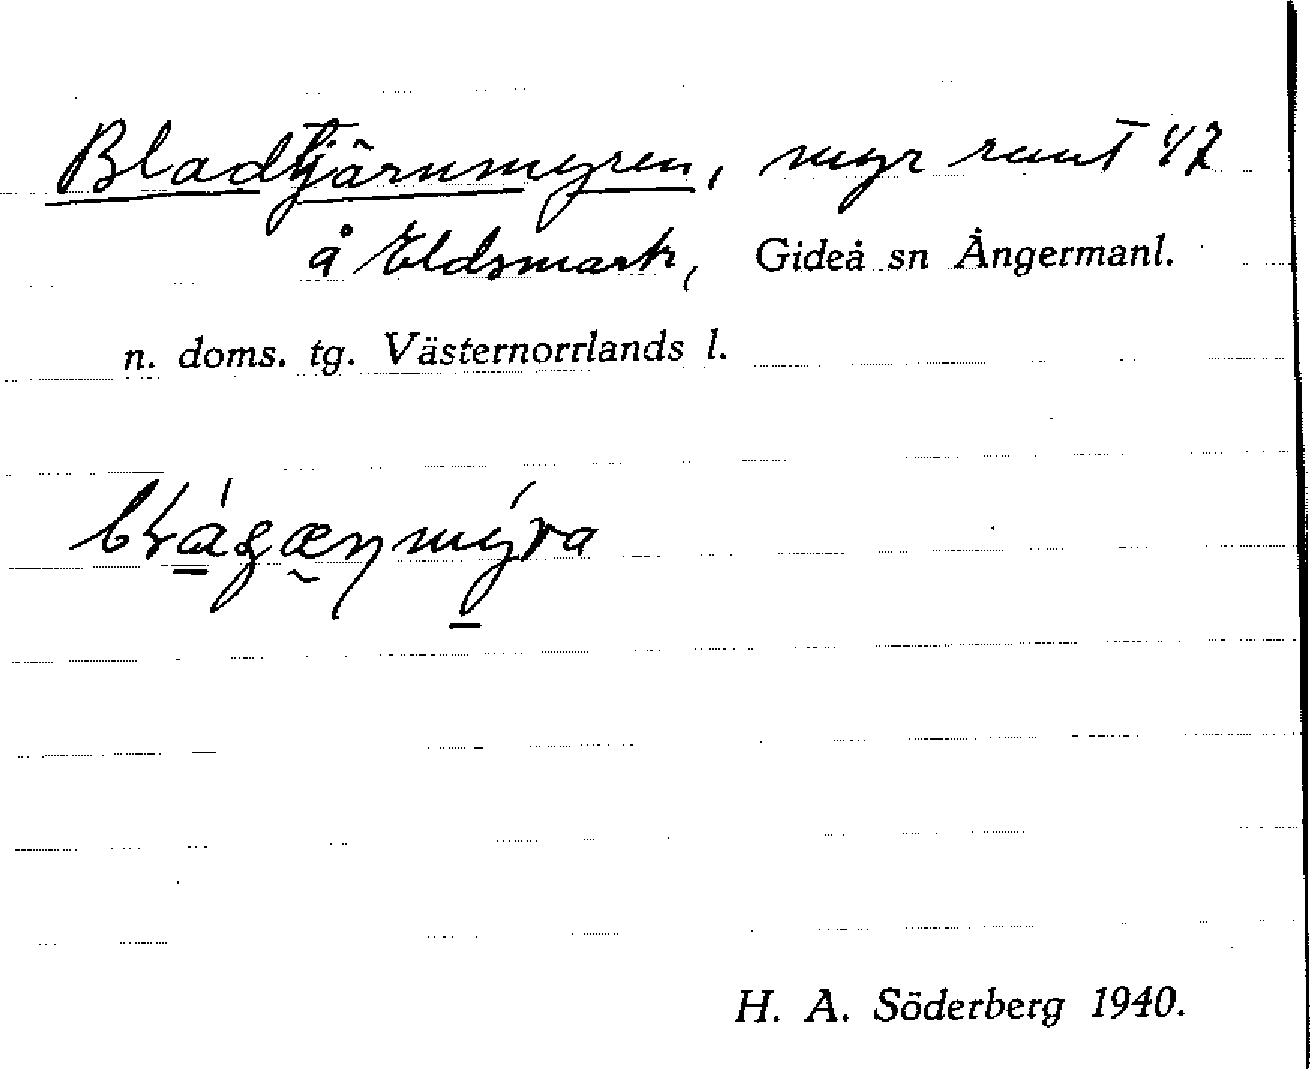 Bladtjärnmyren, myr runt 47
å Eldsmark, Gideå sn Ångermanl.
n. doms. tg. Västernorrlands l.
H. A. Söderberg 1940.